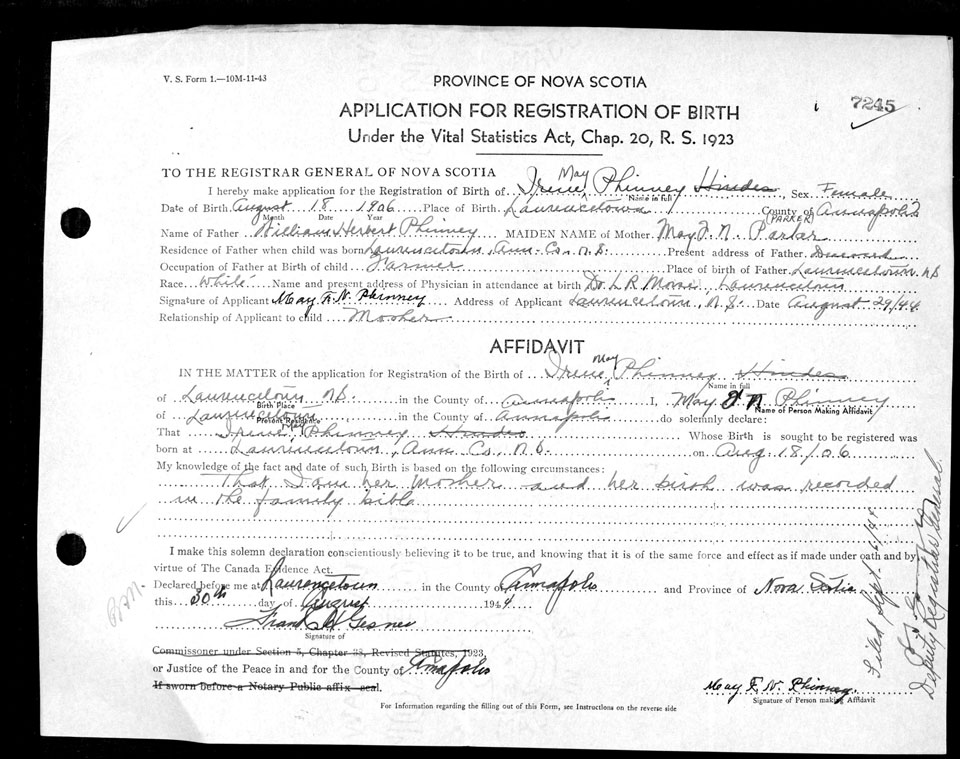 V. S. Form 1.—10M-11-43
PROVINCE OF NOVA SCOTIA
7245
APPLICATION FOR REGISTRATION OF BIRTH
Under the Vital Statistics Act, Chap. 20, R. S. 1923
TO THE REGISTRAR GENERAL OF NOVA SCOTIA
May
I hereby make application for the Registration of Birth of Irene Phinney Hindes, Sex Female
Name in full
Date of Birth August 18 1906 Place of Birth Laurencetown County of Annapolis
Month Date Year (PARKER)
Name of Father William Herbert Phinney MAIDEN NAME of Mother May F. N. Parker
Residence of Father when child was born Laurencetown, Ann. Co., N.S. Present address of Father Deceased
Occupation of Father at Birth of child Farmer Place of birth of Father Laurencetown N S
Race White Name and present address of Physician in attendance at birth Dr. L R Morse Laurencetown
Signature of Applicant May F. N. Phinney Address of Applicant Laurencetown, N.S. Date August 29/44
Relationship of Applicant to child Mother
AFFIDAVIT
May
IN THE MATTER of the application for Registration of the Birth of Irene Phinney Hindes
Name in full
of Laurencetown, N S. in the County of Annapolis I, May F N Phinney
Birth Place Name of Person Making Affidavit
of Laurencetown in the County of Annapolis do solemnly declare:
Present Residence
May
That Irene Phinney Hindes Whose Birth is sought to be registered was
born at Laurencetown, Ann. Co., N.S. on Aug 18/06
My knowledge of the fact and date of such Birth is based on the following circumstances:
That I am her Mother and her birth was recorded
in the family bible
I make this solemn declaration conscientiously believing it to be true, and knowing that it is of the same force and effect as if made under oath and by
virtue of The Canada Evidence Act.
Declared before me at Laurencetown in the County of Annapolis and Province of Nova Scotia
this 30th day of August 1944
Frank H Gesner
Signature of
Commissioner under Section 5, Chapter 38, Revised Statutes, 1923,
or Justice of the Peace in and for the County of Annapolis
If sworn before a Notary Public affix seal.
May F. N. Phinney
Signature of Person making Affidavit
For Information regarding the filling out of this Form, see Instructions on the reverse side
Filed Sept. 6/44
Deputy Registrar General